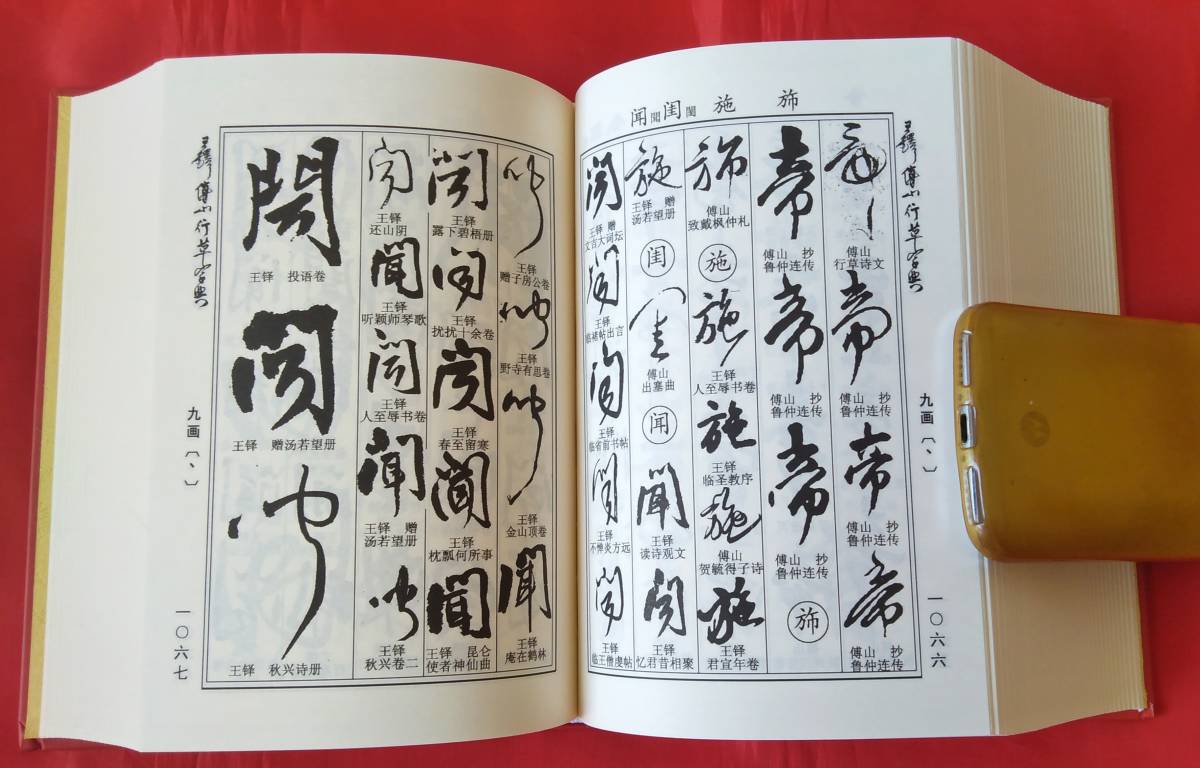 闻聞闺閨 施 旆
王鐸傅山行草字典
九画〔丶〕
一〇六六
傅山
行草诗文
帝
傅山 抄
鲁仲连传
帝
傅山 抄
鲁仲连传
帝
傅山 抄
鲁仲连传
帝
傅山 抄
鲁仲连传
帝
傅山 抄
鲁仲连传
帝
傅山 抄
鲁仲连传
旆
旆
傅山
致戴枫仲札
施
施
王铎
人至辱书卷
施
王铎
临圣教序
施
傅山
贺毓得子诗
施
王铎
君宜年卷
施
王铎 赠
汤若望册
闺
閨
傅山
出塞曲
闻
聞
王铎
读诗观文
聞
王铎
忆君昔相聚
聞
王铎 赠
文吉大词坛
聞
王铎
临褚帖出言
聞
王铎
临省前书帖
聞
王铎
不惮炎方远
聞
王铎
临王僧虔帖
王鐸傅山行草字典
九画〔丶〕
一〇六七
聞
王铎
赠子房公卷
聞
王铎
野寺有思卷
聞
王铎
金山顶卷
聞
王铎
庵在鹤林
聞
王铎
露下碧梧册
聞
王铎
扰扰十余卷
聞
王铎
春至留寒
聞
王铎
枕瓢何所事
聞
王铎 昆仑
使者神仙曲
聞
王铎
还山阴
聞
王铎
听颖师琴歌
聞
王铎
人至辱书卷
聞
王铎 赠
汤若望册
聞
王铎
秋兴卷二
聞
王铎 投语卷
聞
王铎 赠汤若望册
聞
王铎 秋兴诗册